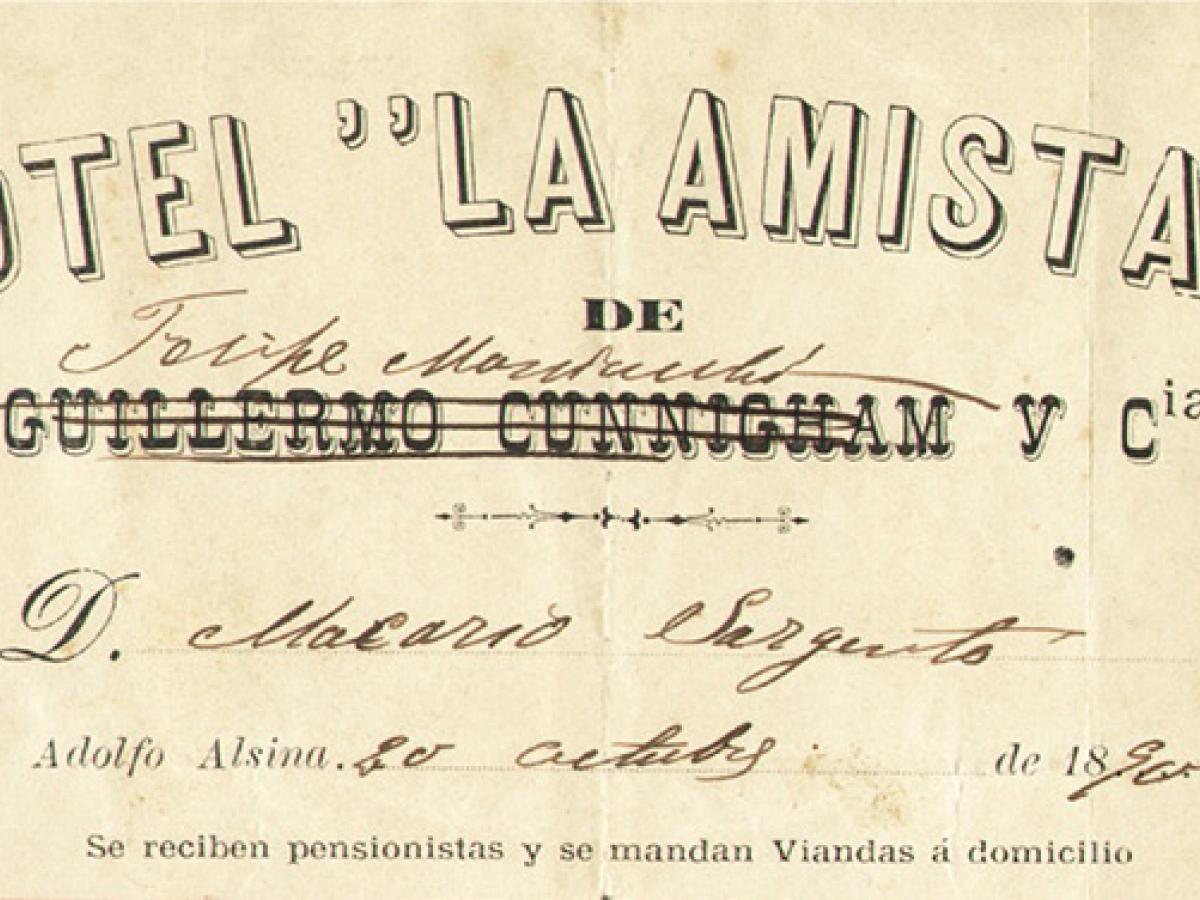 OTEL "LA AMISTA
DE
Felipe
GUILLERMO CUNNIGHAM Y Cia
D. Macario Sargento
Adolfo Alsina. 20 octubre de 1890
Se reciben pensionistas y se mandan Viandas á domicilio